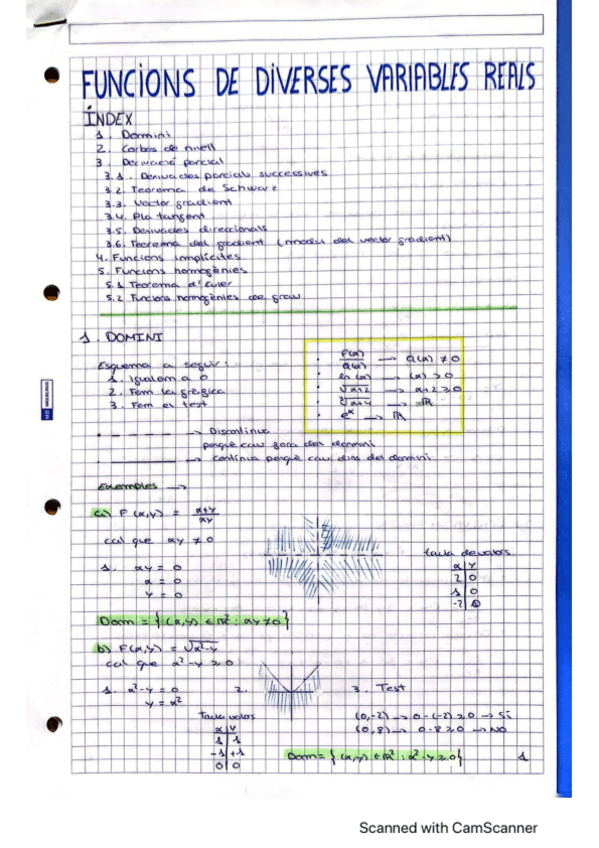 FUNCIONS DE DIVERSES VARIABLES REALS
ÍNDEX
1. Domini
2. Corbes de nivell
3. Derivació parcial
3.1. Derivades parcials successives
3.2. Teorema de Schwarz
3.3. Vector gradient
3.4. Pla tangent
3.5. Derivades direccionals
3.6. Teorema del gradient (mòdul del vector gradient)
4. Funcions implícites
5. Funcions homogènies
5.1 Teorema d'Euler
5.2 Funcions homogènies de grau
1. DOMINI
Esquema a seguir:
1. Igualem a 0
2. Fem la gràfica
3. Fem el test
· F(x)/Q(x) → Q(x) ≠ 0
· ln(x) → (x) > 0
· √x+2 → x+2 ≥ 0
· ∛x+4 → ℝ
· eˣ → ℝ
→ Discontínua
perquè cau fora del domini
→ contínua perquè cau dins del domini
Exemples →
a) F(x,y) = x+y/xy
cal que xy ≠ 0
1. xy = 0
x = 0
y = 0
taula de valors
x y
2 0
1 0
-2 0
Dom = {(x,y) ∈ ℝ² : xy ≠ 0}
b) F(x,y) = √x²-y
cal que x²-y ≥ 0
1. x²-y = 0
y = x²
2.
taula valors
x y
1 1
-1 +1
0 0
3. Test
(0,-2) → 0-(-2) ≥ 0 → Sí
(0,8) → 0-8 ≥ 0 → NO
Dom = {(x,y) ∈ ℝ² : x²-y ≥ 0}
1
Scanned with CamScanner